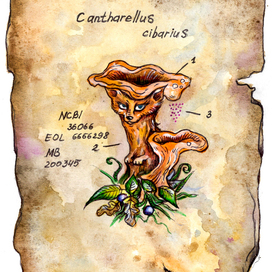 Cantharellus
cibarius
1
NCBI
36066
3
EOL 6666298
2
MB
200345